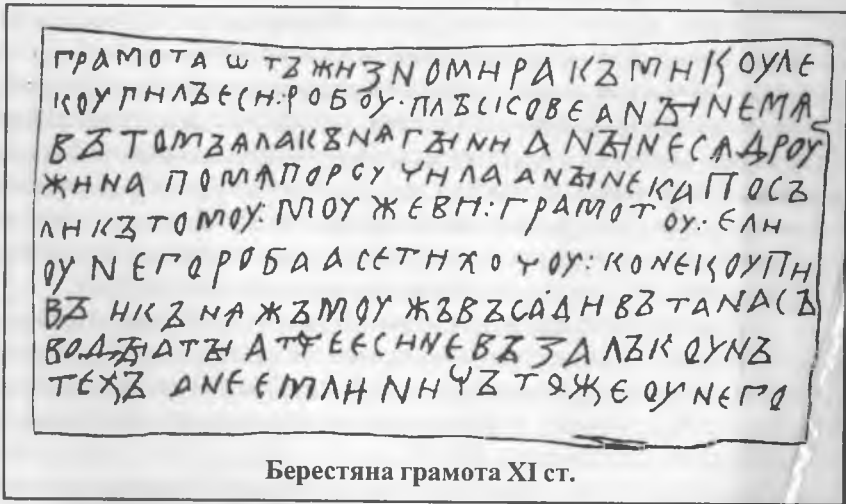 ГРАМОТА Ѡ ТЪ ЖИЗНОМИРА КЪ МИКОУЛЕ
КОУПИЛЪ ЕСИ:РОБОУ·ПЛЪСКОВЕ А НЪІНЕ МѦ
ВЪ ТОМЪ АЛА КЪНѦГЪІНИ А НЪІНЕ СѦ ДРОУ
ЖИНА ПО МѦ ПОРОУЧИЛА А НЪІНЕ КА ПОСЪ
ЛИ КЪ ТОМОУ: МОУЖЕВИ: ГРАМОТОУ: ЕЛИ
ОУ НЕГО РОБА А СЕ ТИ ХОЧОУ: КОНЕ КОУПИ
ВЪ И КЪНѦЖЪ МОУЖЪ ВЪСАДИВЪ ТА НА СЪ
ВОДЪІ А ТЪІ АТЧЕ ЕСИ НЕ ВЪЗАЛЪ КОУНЪ
ТЕХЪ А НЕ ЕМЛИ НИЧЪ ТОЖЕ ОУ НЕГО
Берестяна грамота XI ст.